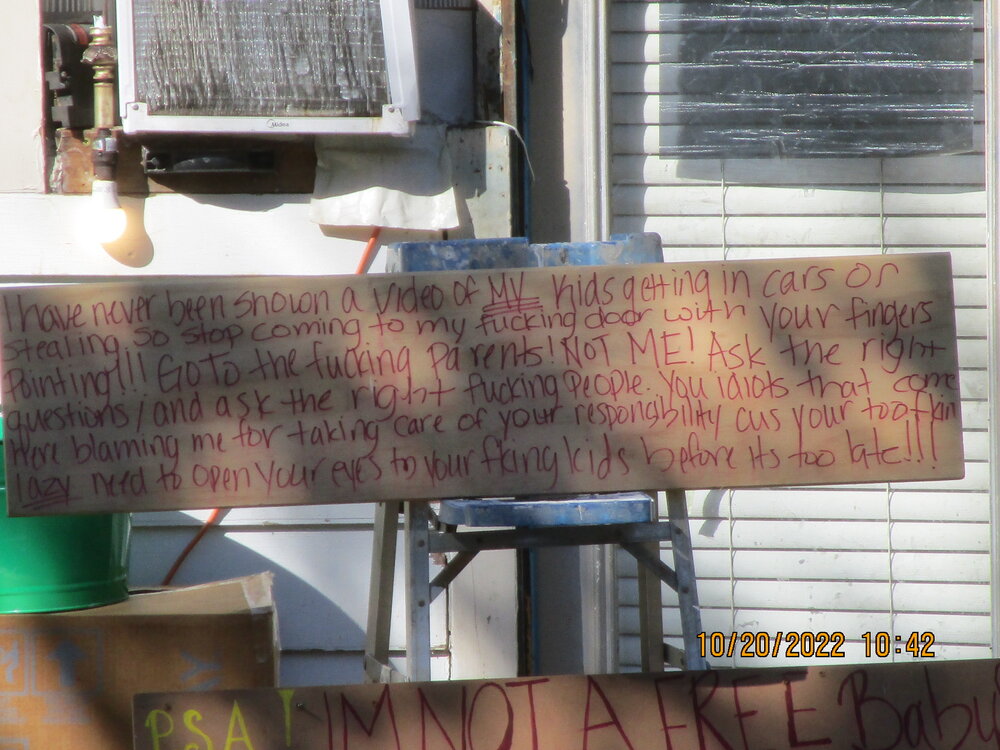 Midea
I have never been shown a video of MY kids getting in cars or
stealing so stop coming to my fucking door with your fingers
Pointing!!! GOTO the fucking parents! NOT ME! Ask the right
questions, and ask the right fucking People. You idiots that come
Here blaming me for taking care of your responsibility cus your too fkin
lazy need to open your eyes to your fking kids before its too late!!!
10/20/2022 10:42
PSA! IM NOT A FREE Baby